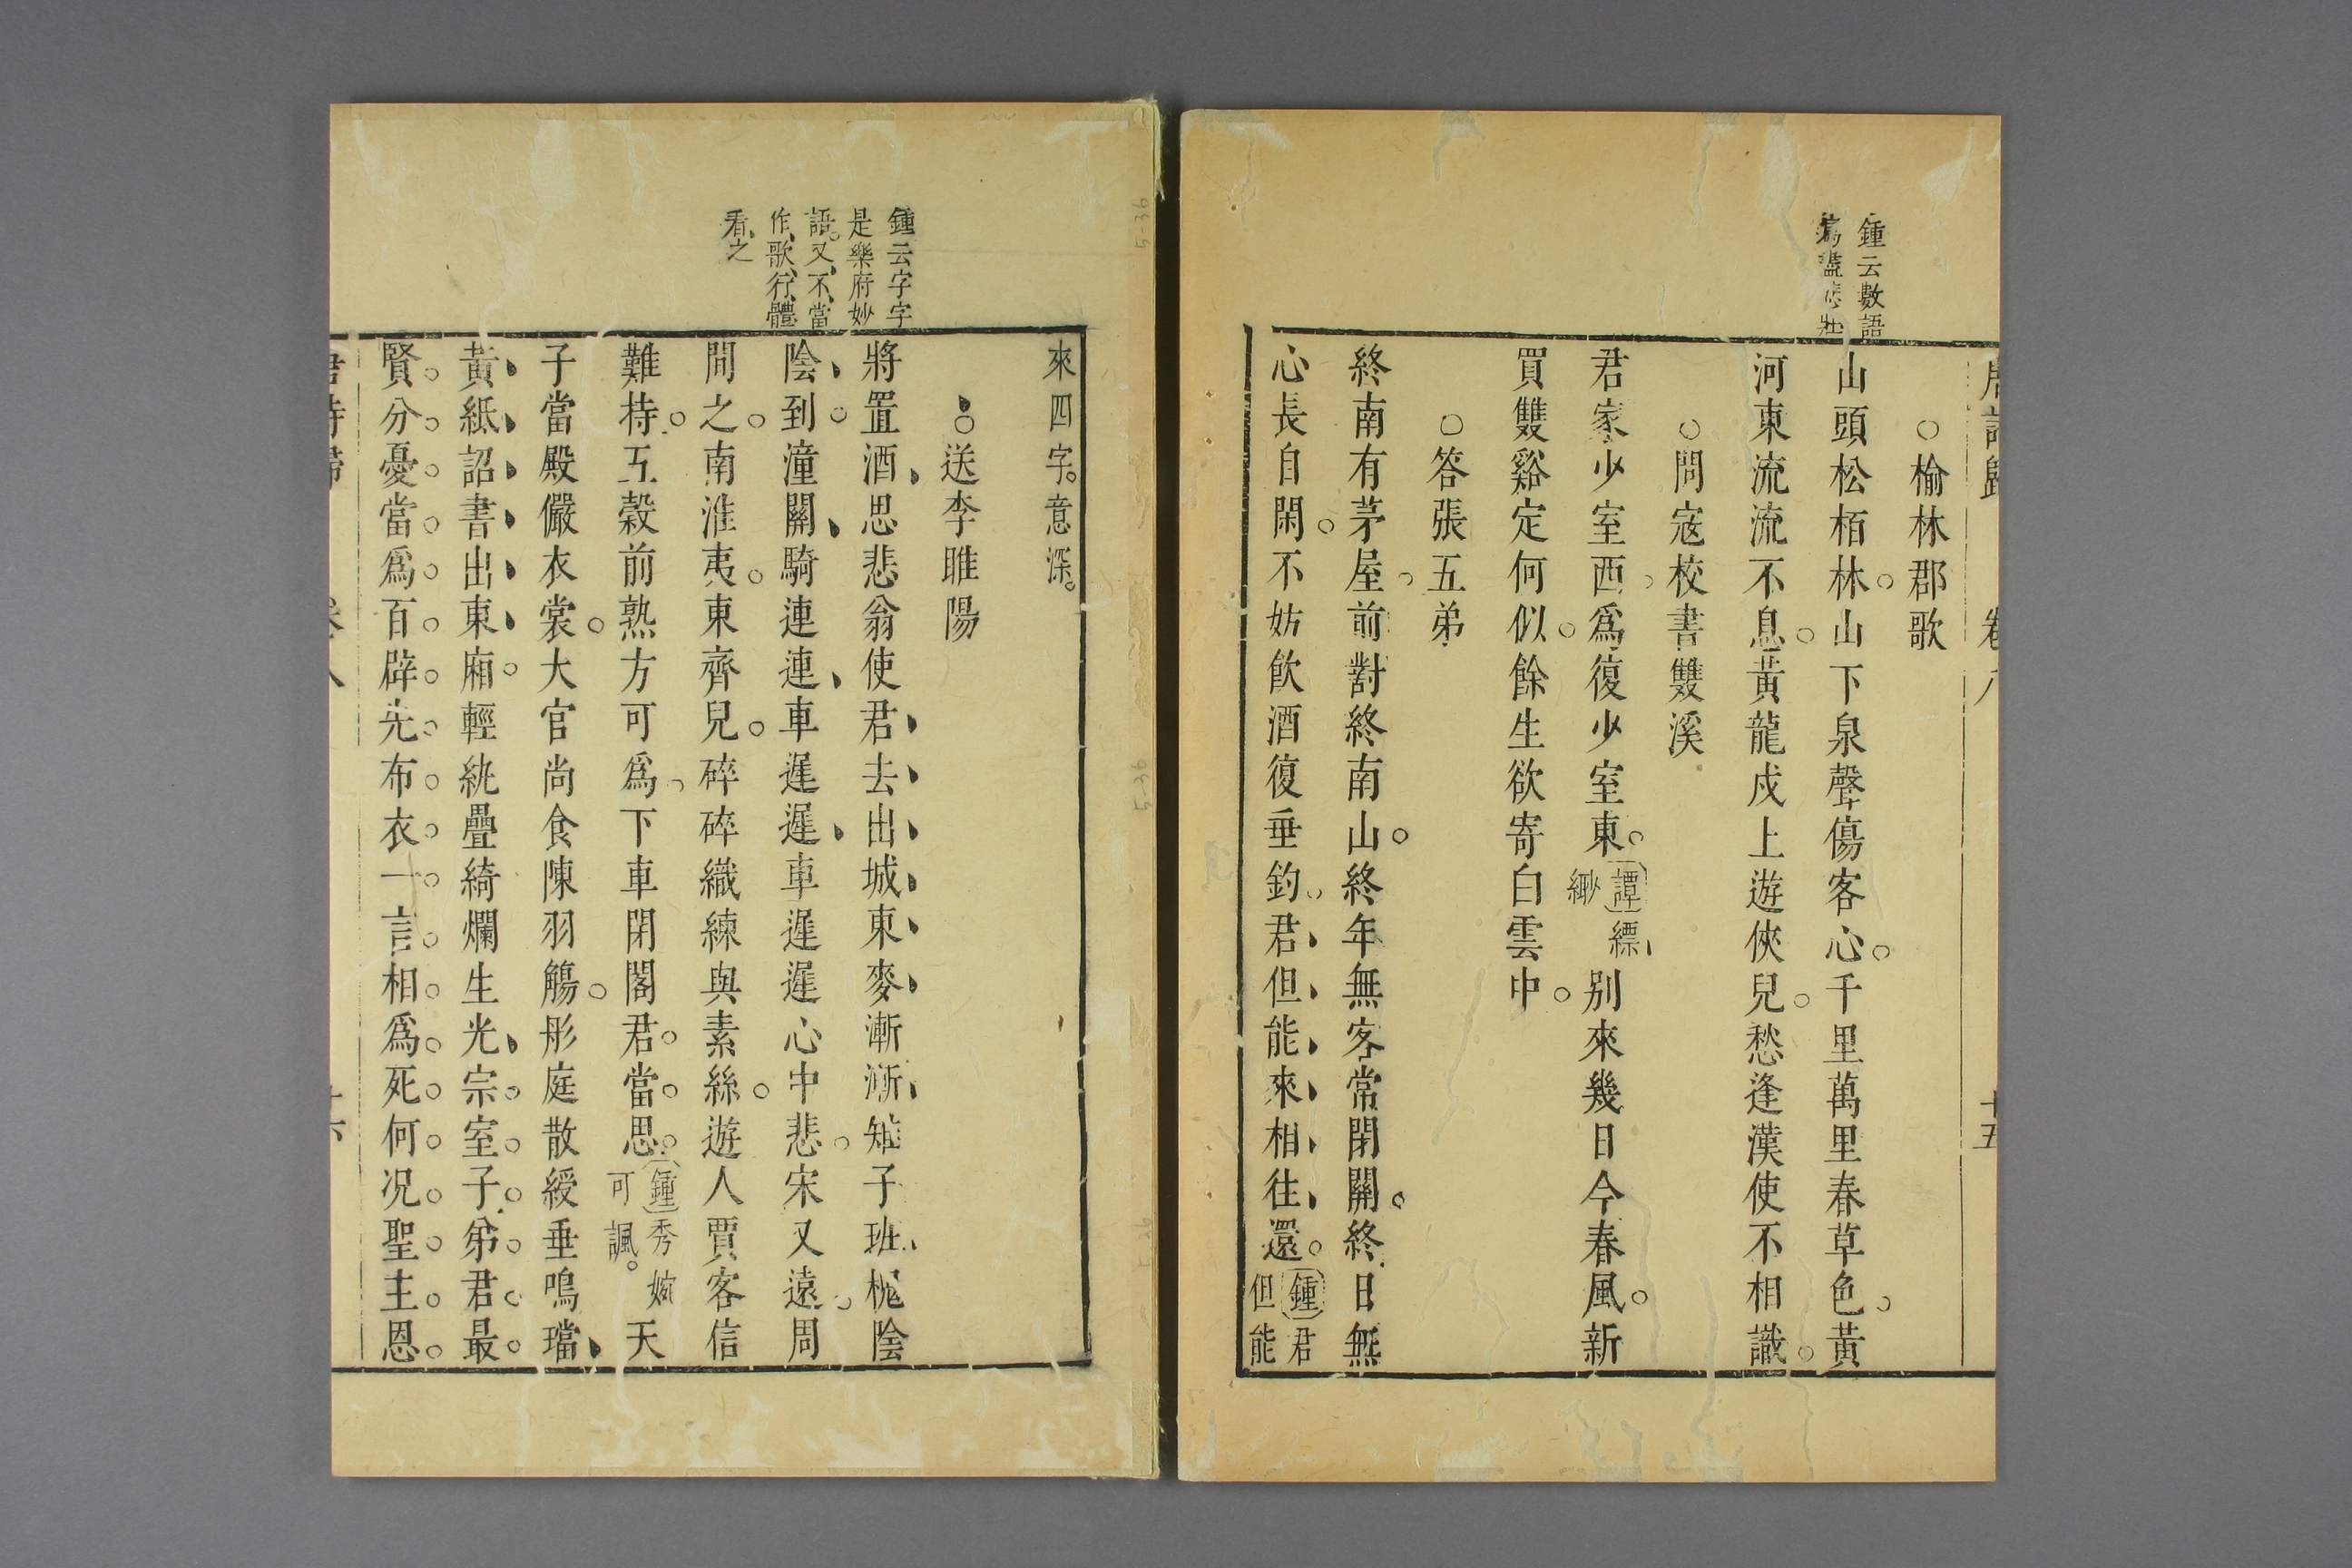 唐詩歸 卷八 十五
鍾云數語
○榆林郡歌
山頭松栢林山下泉聲傷客心千里萬里春草色黃
河東流流不息黃龍戍上遊俠兒愁逢漢使不相識
○問寇校書雙溪
君家少室西爲復少室東譚縹緲別來幾日今春風新
買雙谿定何似餘生欲寄白雲中
○答張五弟
終南有茅屋前對終南山終年無客常閉關終日無
心長自閑不妨飲酒復垂釣君但能來相往還鍾君但能
來四字。意深。
鍾云字字
是樂府妙
語。又不當
作歌行體
看之
○送李睢陽
將置酒思悲翁使君去出城東麥漸漸雉子班槐陰
陰到潼關騎連連車遲遲車遲遲心中悲宋又遠周
間之南淮夷東齊兒碎碎織練與素絲遊人賈客信
難持五穀前熟方可爲下車閉閣君當思鍾秀婉可諷。天
子當殿儼衣裳大官尚食陳羽觴彤庭散綬垂鳴璫
黃紙詔書出東廂輕紈疊綺爛生光宗室子弟君最
賢分憂當爲百辟先布衣一言相爲死何况聖主恩